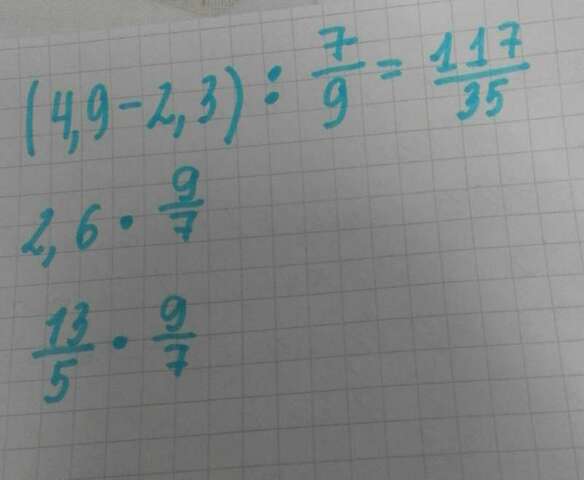 (4,9-2,3): 7/9 = 117/35
2,6 · 9/7
13/5 · 9/7